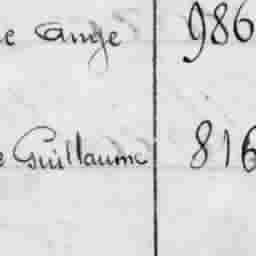 e Ange 986
e Guillaume 816